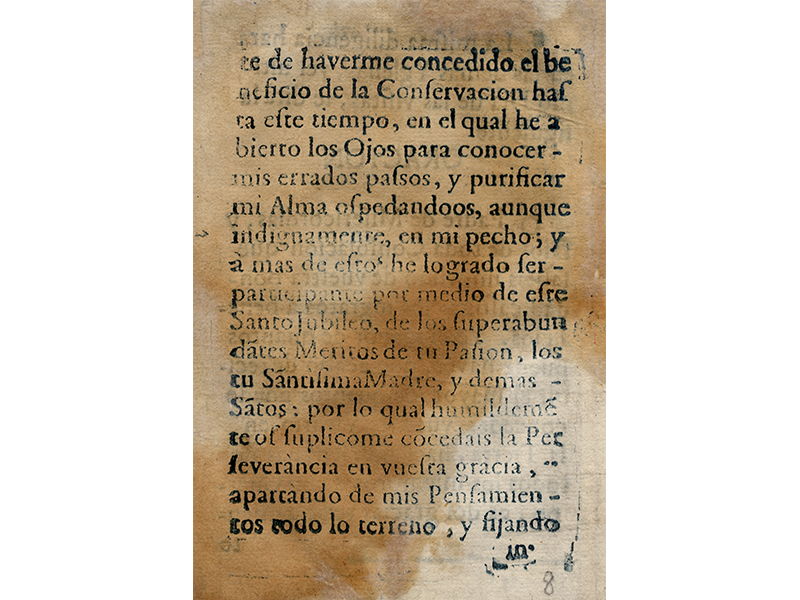 te de haverme concedido el be
neficio de la Conſervacion haſ
ta eſte tiempo, en el qual he a
bierto los Ojos para conocer-
mis errados paſsos, y purificar
mi Alma oſpedandoos, aunque
indignamente, en mi pecho; y
à mas de eſto he logrado ſer-
participante por medio de eſte
Santo Jubileo, de los ſuperabun
dātes Meritos de tu Paſion, los
tu SāntiſimaMadre, y demas -
Sātos: por lo qual humildemē
te oſ ſuplicome cōcedais la Per
ſeverància en vueſtra gràcia,
apartàndo de mis Penſamien-
tos todo lo terreno, y fijándo
8